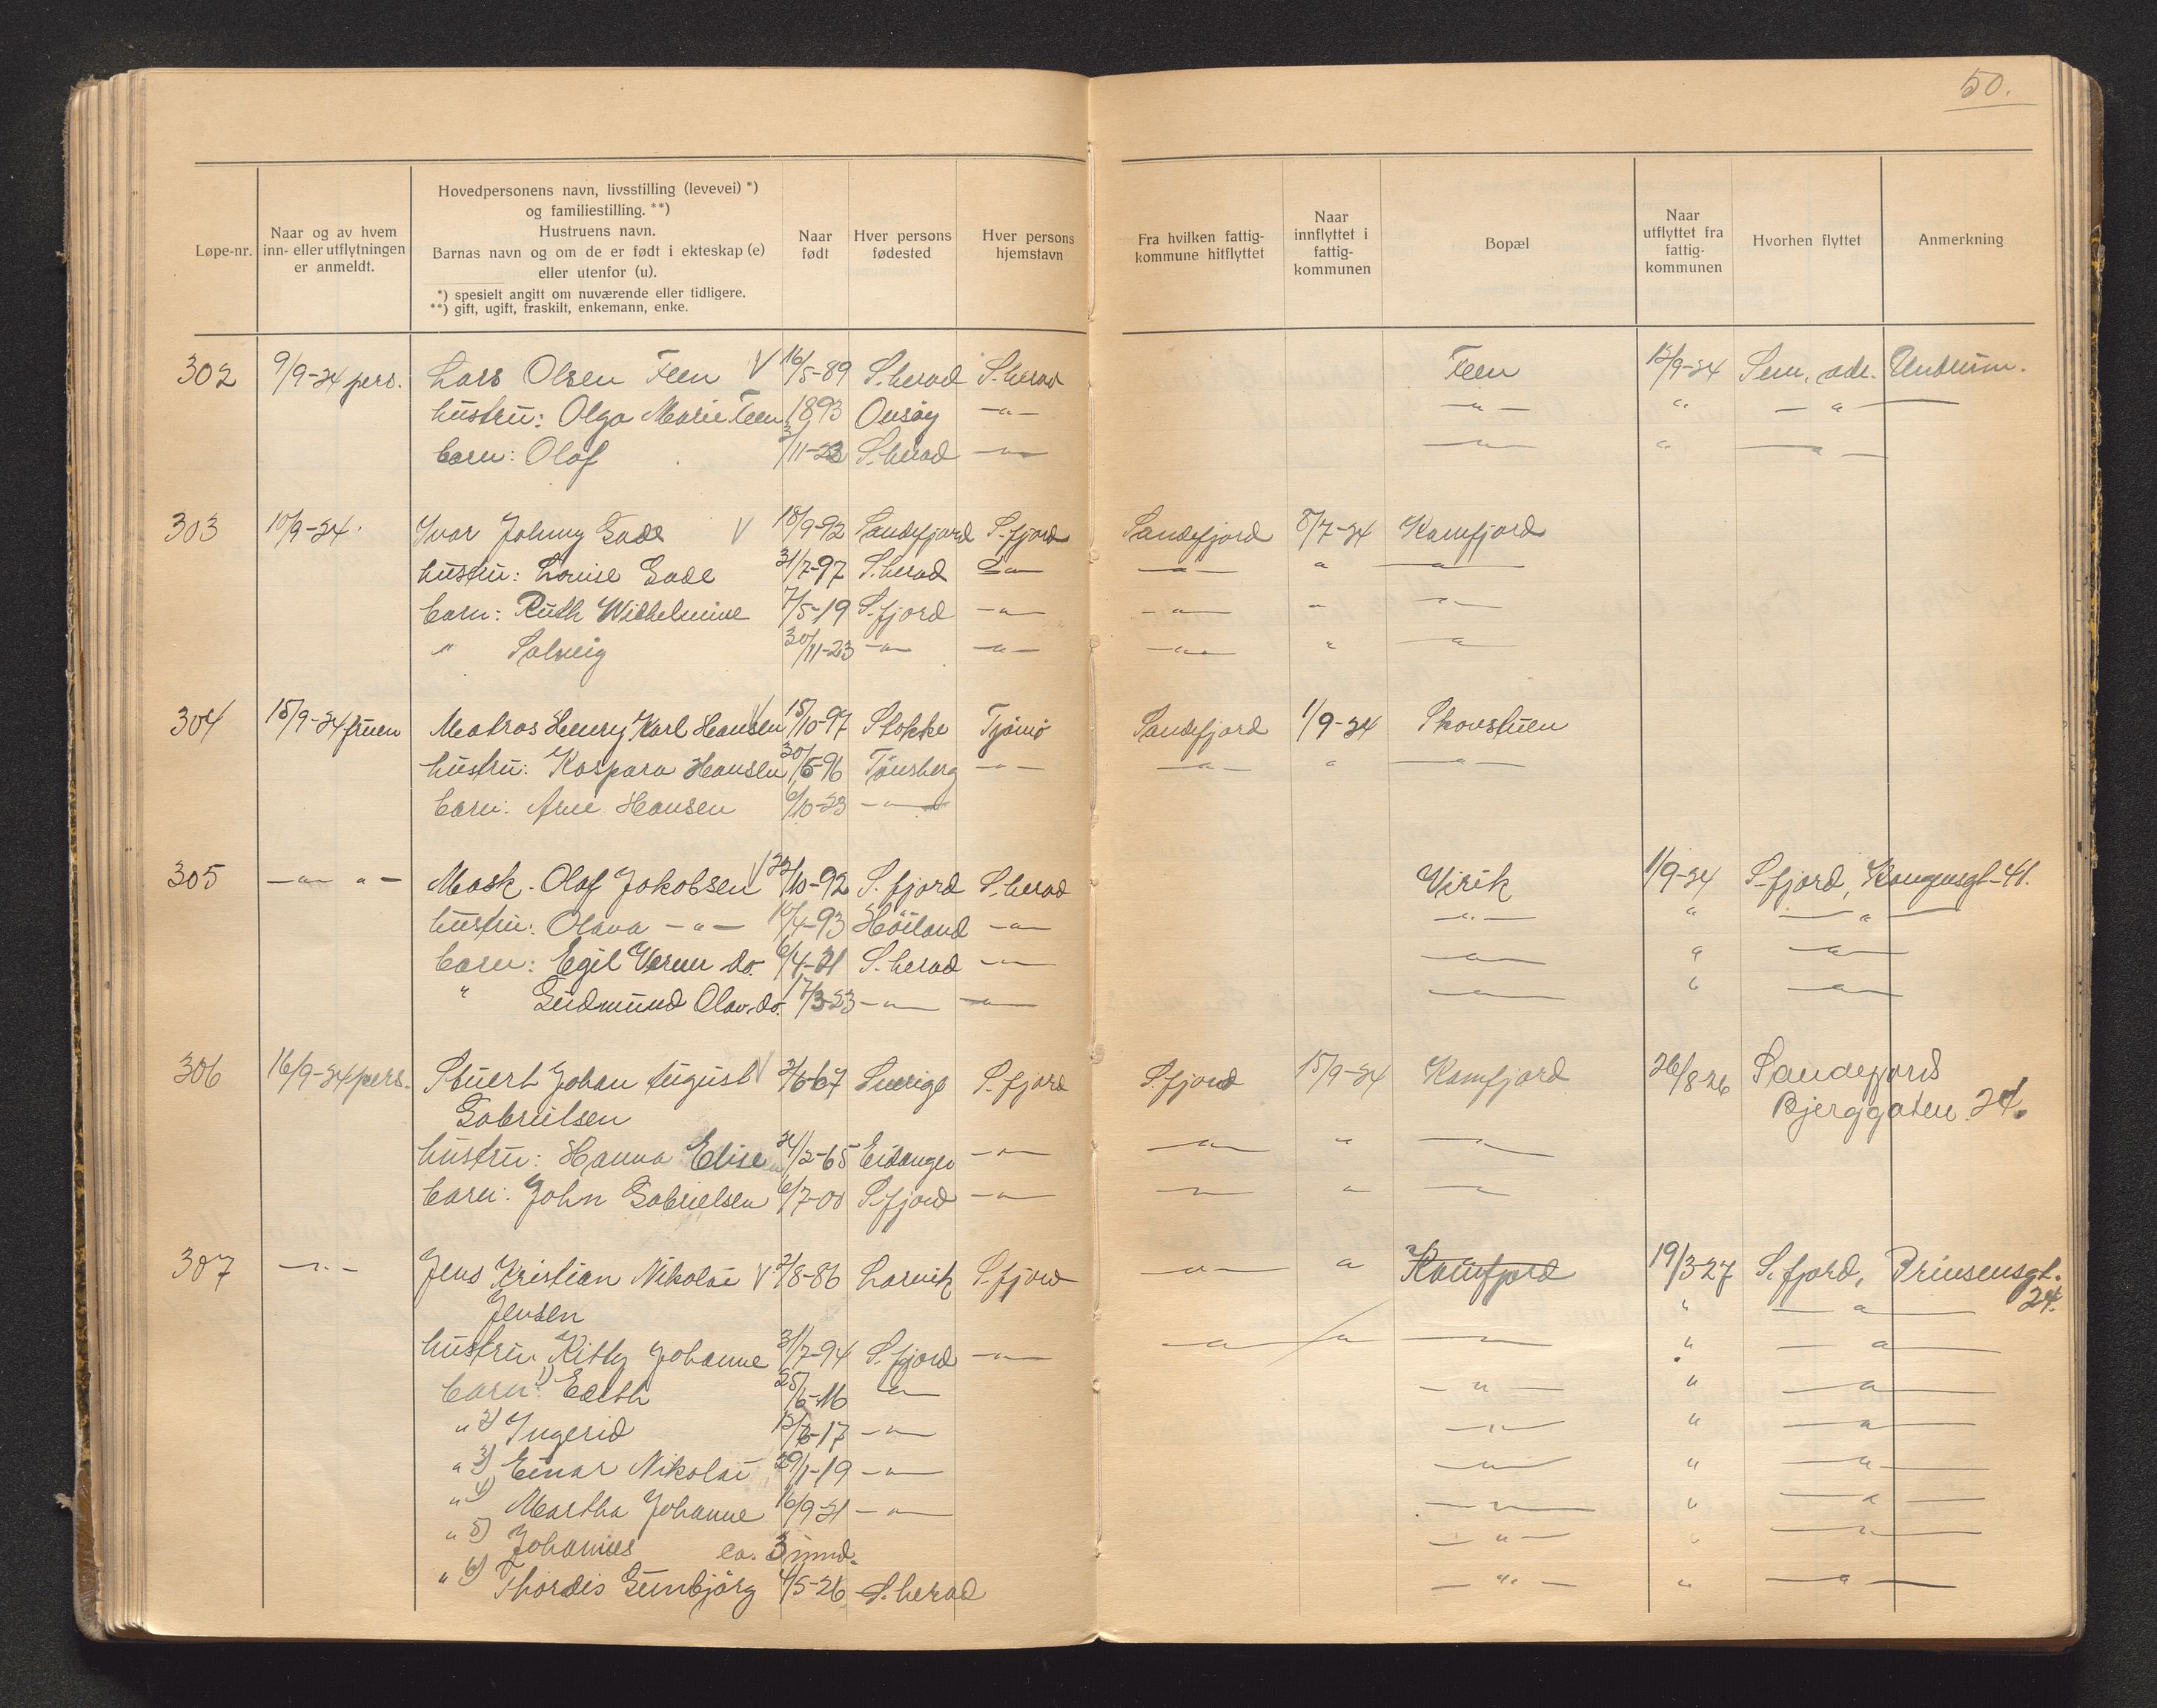 50.
Løpe-nr.
Naar og av hvem
inn- eller utflytningen
er anmeldt.
Hovedpersonens navn, livsstilling (levevei) *)
og familiestilling. **)
Hustruens navn.
Barnas navn og om de er født i ekteskap (e)
eller utenfor (u).
*) spesielt angitt om nuværende eller tidligere.
**) gift, ugift, fraskilt, enkemann, enke.
Naar
født
Hver persons
fødested
Hver persons
hjemstavn
Fra hvilken fattig-
kommune hitflyttet
Naar
innflyttet i
fattig-
kommunen
Bopæl
Naar
utflyttet fra
fattig-
kommunen
Hvorhen flyttet
Anmerkning
302 9/9-24 pers. Lars Olsen Feen V 16/5-89 S.herad S.herad Feen 12/9-24 Sem. adr. Undrum.
hustru: Olga Marie Feen 1893 Onsøy —"— —"— " —"—
barn: Olaf 3/11-23 S.herad —"— —"— " —"—
303 10/9-24. Yvar Johnny Gade V 18/9-92 Sandefjord S.fjord Sandefjord 8/7-24 Kamfjord
hustru: Lovise Gade 31/7-97 S.herad —"— —"— " —"—
barn: Ruth Wilhelmine 7/5-19 S.fjord —"— —"— " —"—
" Solveig 30/11-23 —"— —"— —"— " —"—
304 15/9-24 fruen Matros Henry Karl Hansen V 15/10-97 Stokke Tjømø Sandefjord 1/9-24 Skovstuen
hustru: Kaspara Hansen 30/5-96 Tønsberg —"— —"— " —"—
barn: Arne Hansen 6/10-23 —"—
305 —"— "— Mask. Olaf Jakobsen V 22/10-92 S.fjord S.herad Virik 1/9-24 S.fjord, Kongensgt-41.
hustru: Olava —"— 10/4-93 Höiland —"— —"— " —"—
barn: Egil Verner do. 6/4-21 S.herad —"— —"— " —"—
" Gudmund Olav do. 17/3-23 —"— —"— —"— " —"—
306 16/9-24 pers. Stuert Johan August V 2/6-67 Sverige S.fjord S.fjord 15/9-24 Kamfjord 26/8 26 Sandefjord
Gabrielsen Bjerggaten 24.
hustru: Hanna Elise 24/2-65 Eidanger —"— —"— " —"—
barn: John Gabrielsen 6/7-00 S.fjord —"— —"— " —"—
307 —"— Jens Kristian Nikolai V 2/8-86 Larvik S.fjord —"— " Kamfjord 19/3-27 S.fjord, Prinsensgt.
Jensen " —"— 24.
hustru Kitty Johanne 31/7-94 S.fjord —"— —"— " —"— " —"—
barn: 1) Edith 25/6-16 —"— —"— " —"—
" 2) Ingerid 12/8-17 —"— —"— " —"—
" 3) Einar Nikolai 29/1-19 —"— —"— " —"—
" 4) Martha Johanne 16/9-21 —"— —"— " —"—
" 5) Johannes ca. 3 mnd. —"— " —"—
" 6) Thordis Gunbjörg 4/5-26 S.herad —"— " —"—